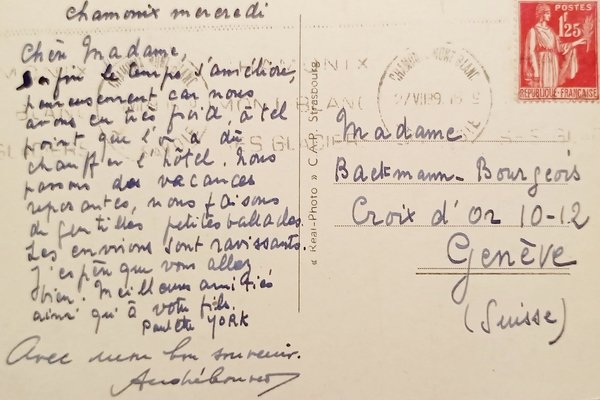 Chamonix mercredi
Chère Madame,
Enfin le temps s'améliore,
heureusement car nous
avons eu très froid, à tel
point que l'on a dû
chauffer l'hôtel. Nous
passons des vacances
reposantes, nous faisons
de gentilles petites ballades.
Les environs sont ravissants.
J'espère que vous allez
bien. Meilleures amitiés
ainsi qu'à votre fils.
Paulette YORK
Avec mon bon souvenir.
« Real-Photo » C.A.P. Strasbourg
CHAMONIX-MONT-BLANC
POSTES
1F25
REPUBLIQUE-FRANÇAISE
Madame
Backmann-Bourgeois
Croix d'Or 10-12
Genève
(Suisse)